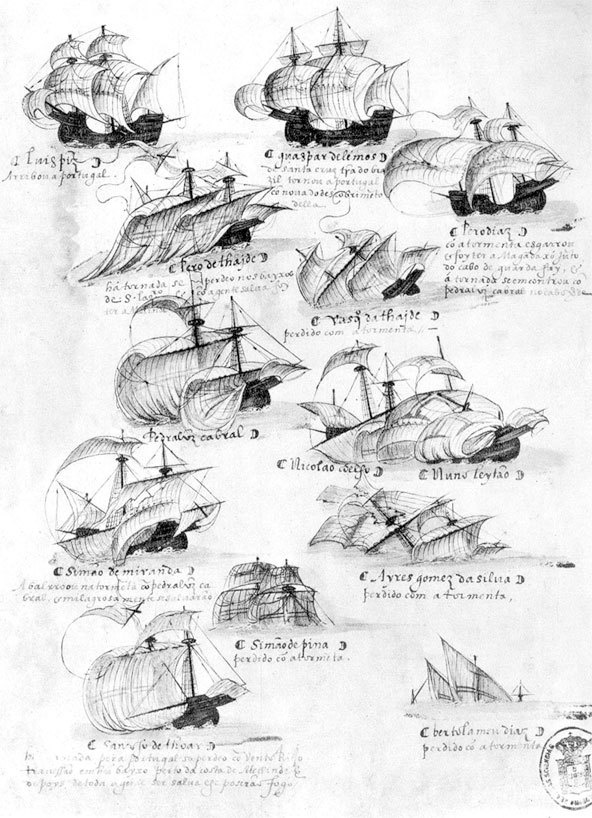 C Luis piz D
Arribou a portugal.
C guaspar de lemos D
de santa cruz tra do bra
zil tornou a portugal
cō nova do descobrimēto
della.
C Pero diaz D
cō a tormenta esgarrou
& foy ter a Magadaxó juto
do cabo de guardafuy, &
á tornada se emcontrou cō
pedralvz cabral no cabo
C Pero de thaide D
há tornada se perdeo nos bayxos
de S. lazº cō a gente salva,
ter a
C Vasº da thaide D
perdido com a tormenta.
Pedralvz cabral D
C Nicolao coelho D
C Nuno leytão D
C Simão de miranda D
Abalrroou na tormēta cō pedralvz ca
bral, & milagrosamente se salvarão
C Ayres gomez da silva D
perdido com a tormenta,
C Simão de pina D
perdido cō a tormēta.
C Sancho de thoar D
pera portugal se perdeo cō vento
travessão em hu bayxo perto da costa de
depoys de toda a gente ser salva poserão fogo
C bertolameu diaz D
perdido cō a tormenta